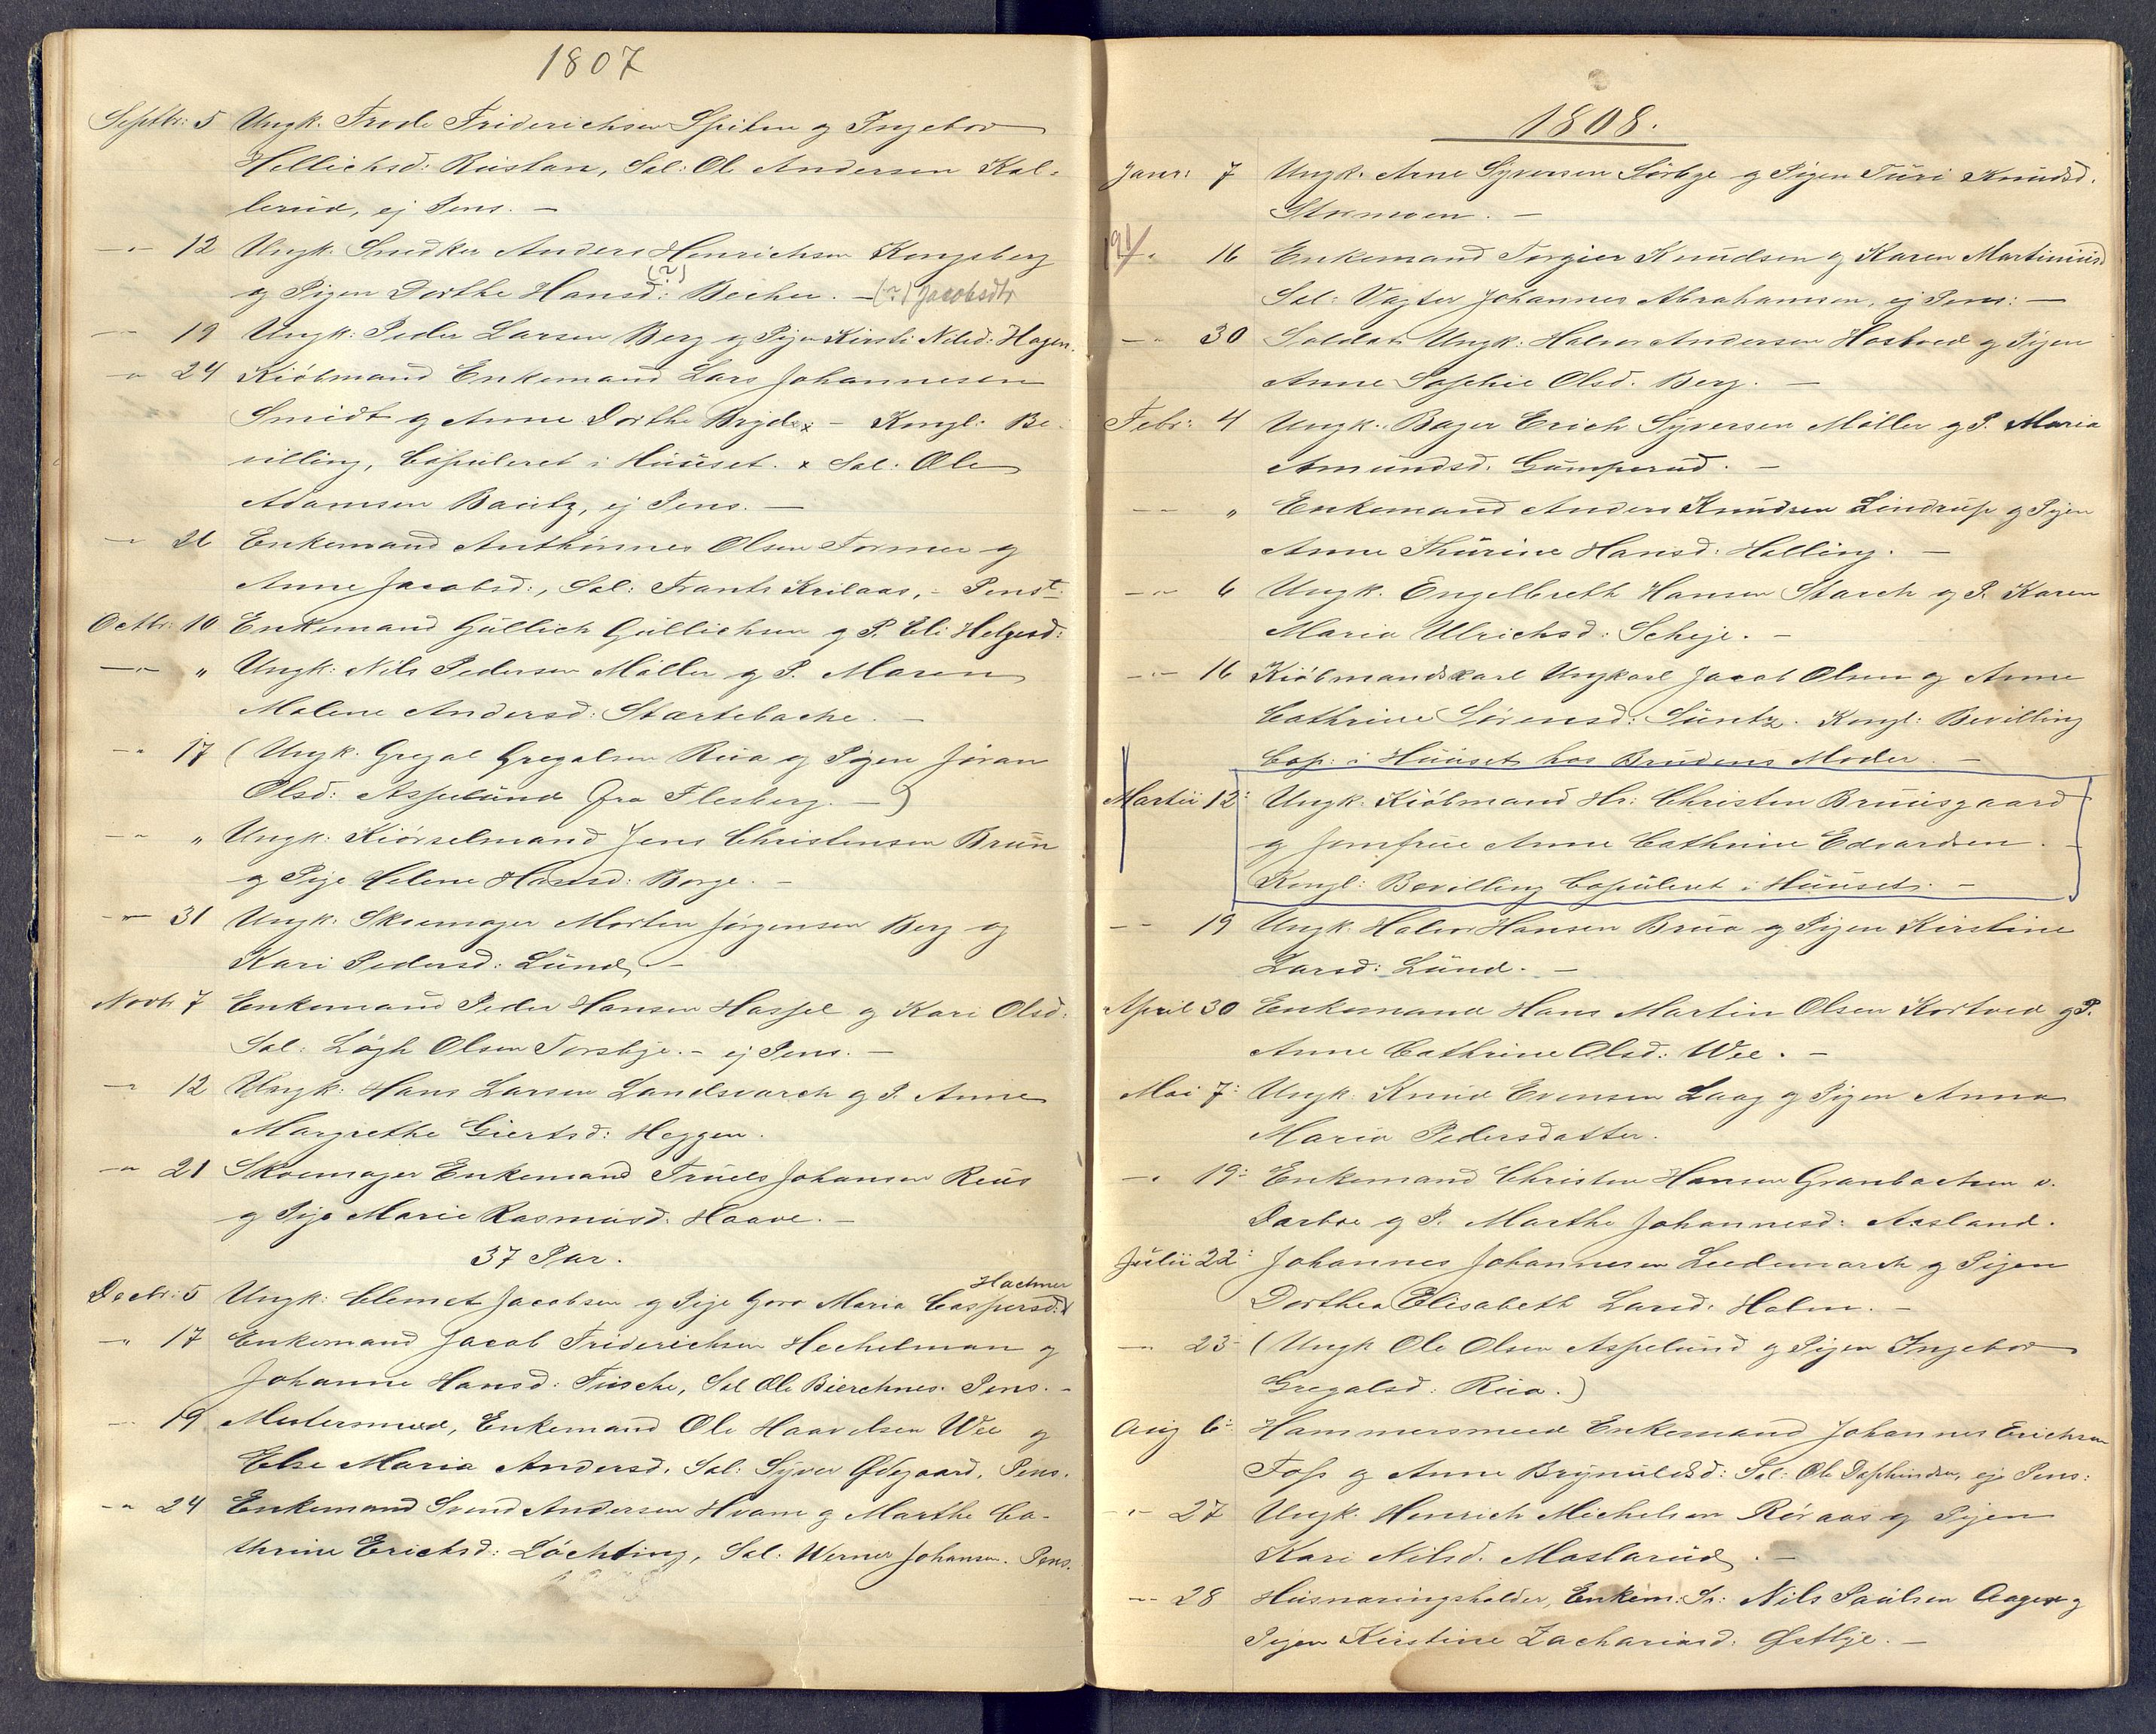 1807
Septbr: 5 Ungk. Frode Friderichsen Spiten og Ingebor
Hellichsd: Rustan, Sal: Ole Andersen Kal-
lerud, ej Pens. —
—"— 12 Ungk. Snedker Anders Henrichsen Kongsberg
og Pigen Dorthe Hansd: (?) Becher. — (?) Jacobsdtr
— 19 Ungk: Peder Larsen Berg og Pigen Kirsti Nilsd: Hagen.
—" 24 Kiöbmand Enkemand Lars Johannesen
Smidt og Anne Dorthe Bryde x — Kongl: Be-
villing, Copuleret i Huuset. x Sal: Ole
Adamsen Bautz, ej Pens. —
— 26 Enkemand Anthonnes Olsen Former og
Anne Jacobsd:, Sal: Frants Krilaas, - Penst.
Octbr: 10 Enkemand Gullich Gullichsen og P. Eli Helgesd:
—"— " Ungk: Nils Pedersen Möller og P. Maren
Malene Andersd: Stærtebache. —
—" 17 (Ungk. Gregal Gregalsen Rua og Pigen Jöran
Olsd: Aspelund fra Flesberg. —)
—" " Ungk: Kiörselmand Jens Christensen Brun
og Pige Helene Hansd: Borge. —
—"— 31 Ungk: Skoemager Morten Jörgensen Berg og
Kari Pedersd: Lund. —
Novbr 7 Enkemand Peder Hansen Hassel og Kari Olsd:
Sal: Lögh Olsen Torsbye. - ej Pens. —
—" 12 Ungk: Hans Larsen Landsvarch og P. Anne
Margrethe Giertsd: Heggen.
—" 21 Skoemager Enkemand Truels Johansen Reus
og Pige Marie Rasmusd: Haave. —
37 Par.
Hachner
Decbr: 5 Ungk: Clemet Jacobsen og Pige Goro Maria Caspersd: x
—" 17 Enkemand Jacob Friderichsen Hechelman og
Johanne Hansd: Fusche, Sal Ole Bierchnes. Pens. -
— 19 Mestersmed, Enkemand Ole Haavelsen Wee og
Else Maria Andersd. Sal: Syver Ødegaard, Pens.
—" 24 Enkemand Svend Andersen Hvam og Marthe Ca-
thrine Erichsd: Löchting, Sal: Werner Johansen. Pens.
1808.
Janr: 7 Ungk. Arne Syversen Sörbye og Pigen Turi Knudsd.
Stormoen. —
191 " 16 Enkemand Torgier Knudsen og Karen Martinusd
Sal: Vagter Johannes Abrahamsen, ej Pens: —
—" 30 Soldat Ungk: Halvor Andersen Hostved og Pigen
Anne Sophie Olsd. Berg. —
Febr: 4 Ungk. Bager Erich Syversen Möller og P. Maria
Amundsd. Gumperud. —
—— " Enkemand Anders Knudsen Lindrup og Pigen
Anne Thurine Hansd: Helling. —
—"— 6 Ungk. Engelbreth Hansen Starch og P. Karen
Maria Ulrichsd: Scheje. —
—"— 16 Kiöbmandskarl Ungkarl Jacob Olsen og Anne
Cathrine Sörensd: Suntz. Kongl: Bevilling
Cop: i Huuset hos Brudens Moder. —
Martii 12: Ungk. Kiöbmand Hr: Christen Bruusgaard
og Jomfrue Anne Cathrine Edvardsen. —
Kongl: Bevilling Copuleret i Huuset. —
—— 19 Ungk. Halvor Hansen Brua og Pigen Kirstine
Larsd: Lund. —
April 30 Enkemand Hans Martin Olsen Kortved og P.
Anne Cathrine Olsd: Wee. —
Mai 7: Ungk. Knud Evensen Laag og Pigen Anna
Maria Pedersdatter.
—" 19: Enkemand Christen Hansen Granbachen v.
Darboe og P. Marthe Johannesd: Aasland.
Julii 22: Johannes Johannesen Ledemarch og Pigen
Dorthea Elisabeth Larsd: Holm. —
— 23 (Ungk Ole Olsen Aspelund og Pigen Ingebor
Gregalsd: Rua.)
Aug 6: Hammersmed Enkemand Johannes Erichsen
Foss og Anne Brynildsd: Sal: Ole Daphinsen, ej Pens:
"— 27 Ungk. Henrich Michelsen Röraas og Pigen
Kari Nilsd. Moslarud. —
—— 28 Husnæringsholder, Enkem: Sr: Nils Paulsen Aager og
Pigen Kirstine Zachariasd. Østbye. —